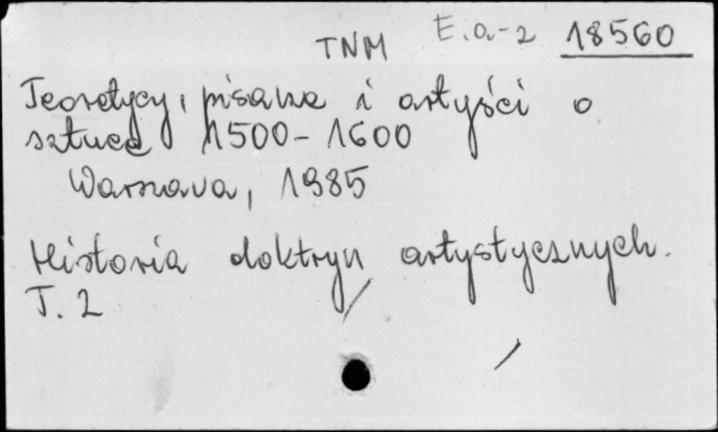 TNM E.a-2 18560
Teoretycy, pisarze i artyści o
sztuce 1500-1600
Warszawa, 1985
Historia doktryn artystycznych.
T. 2